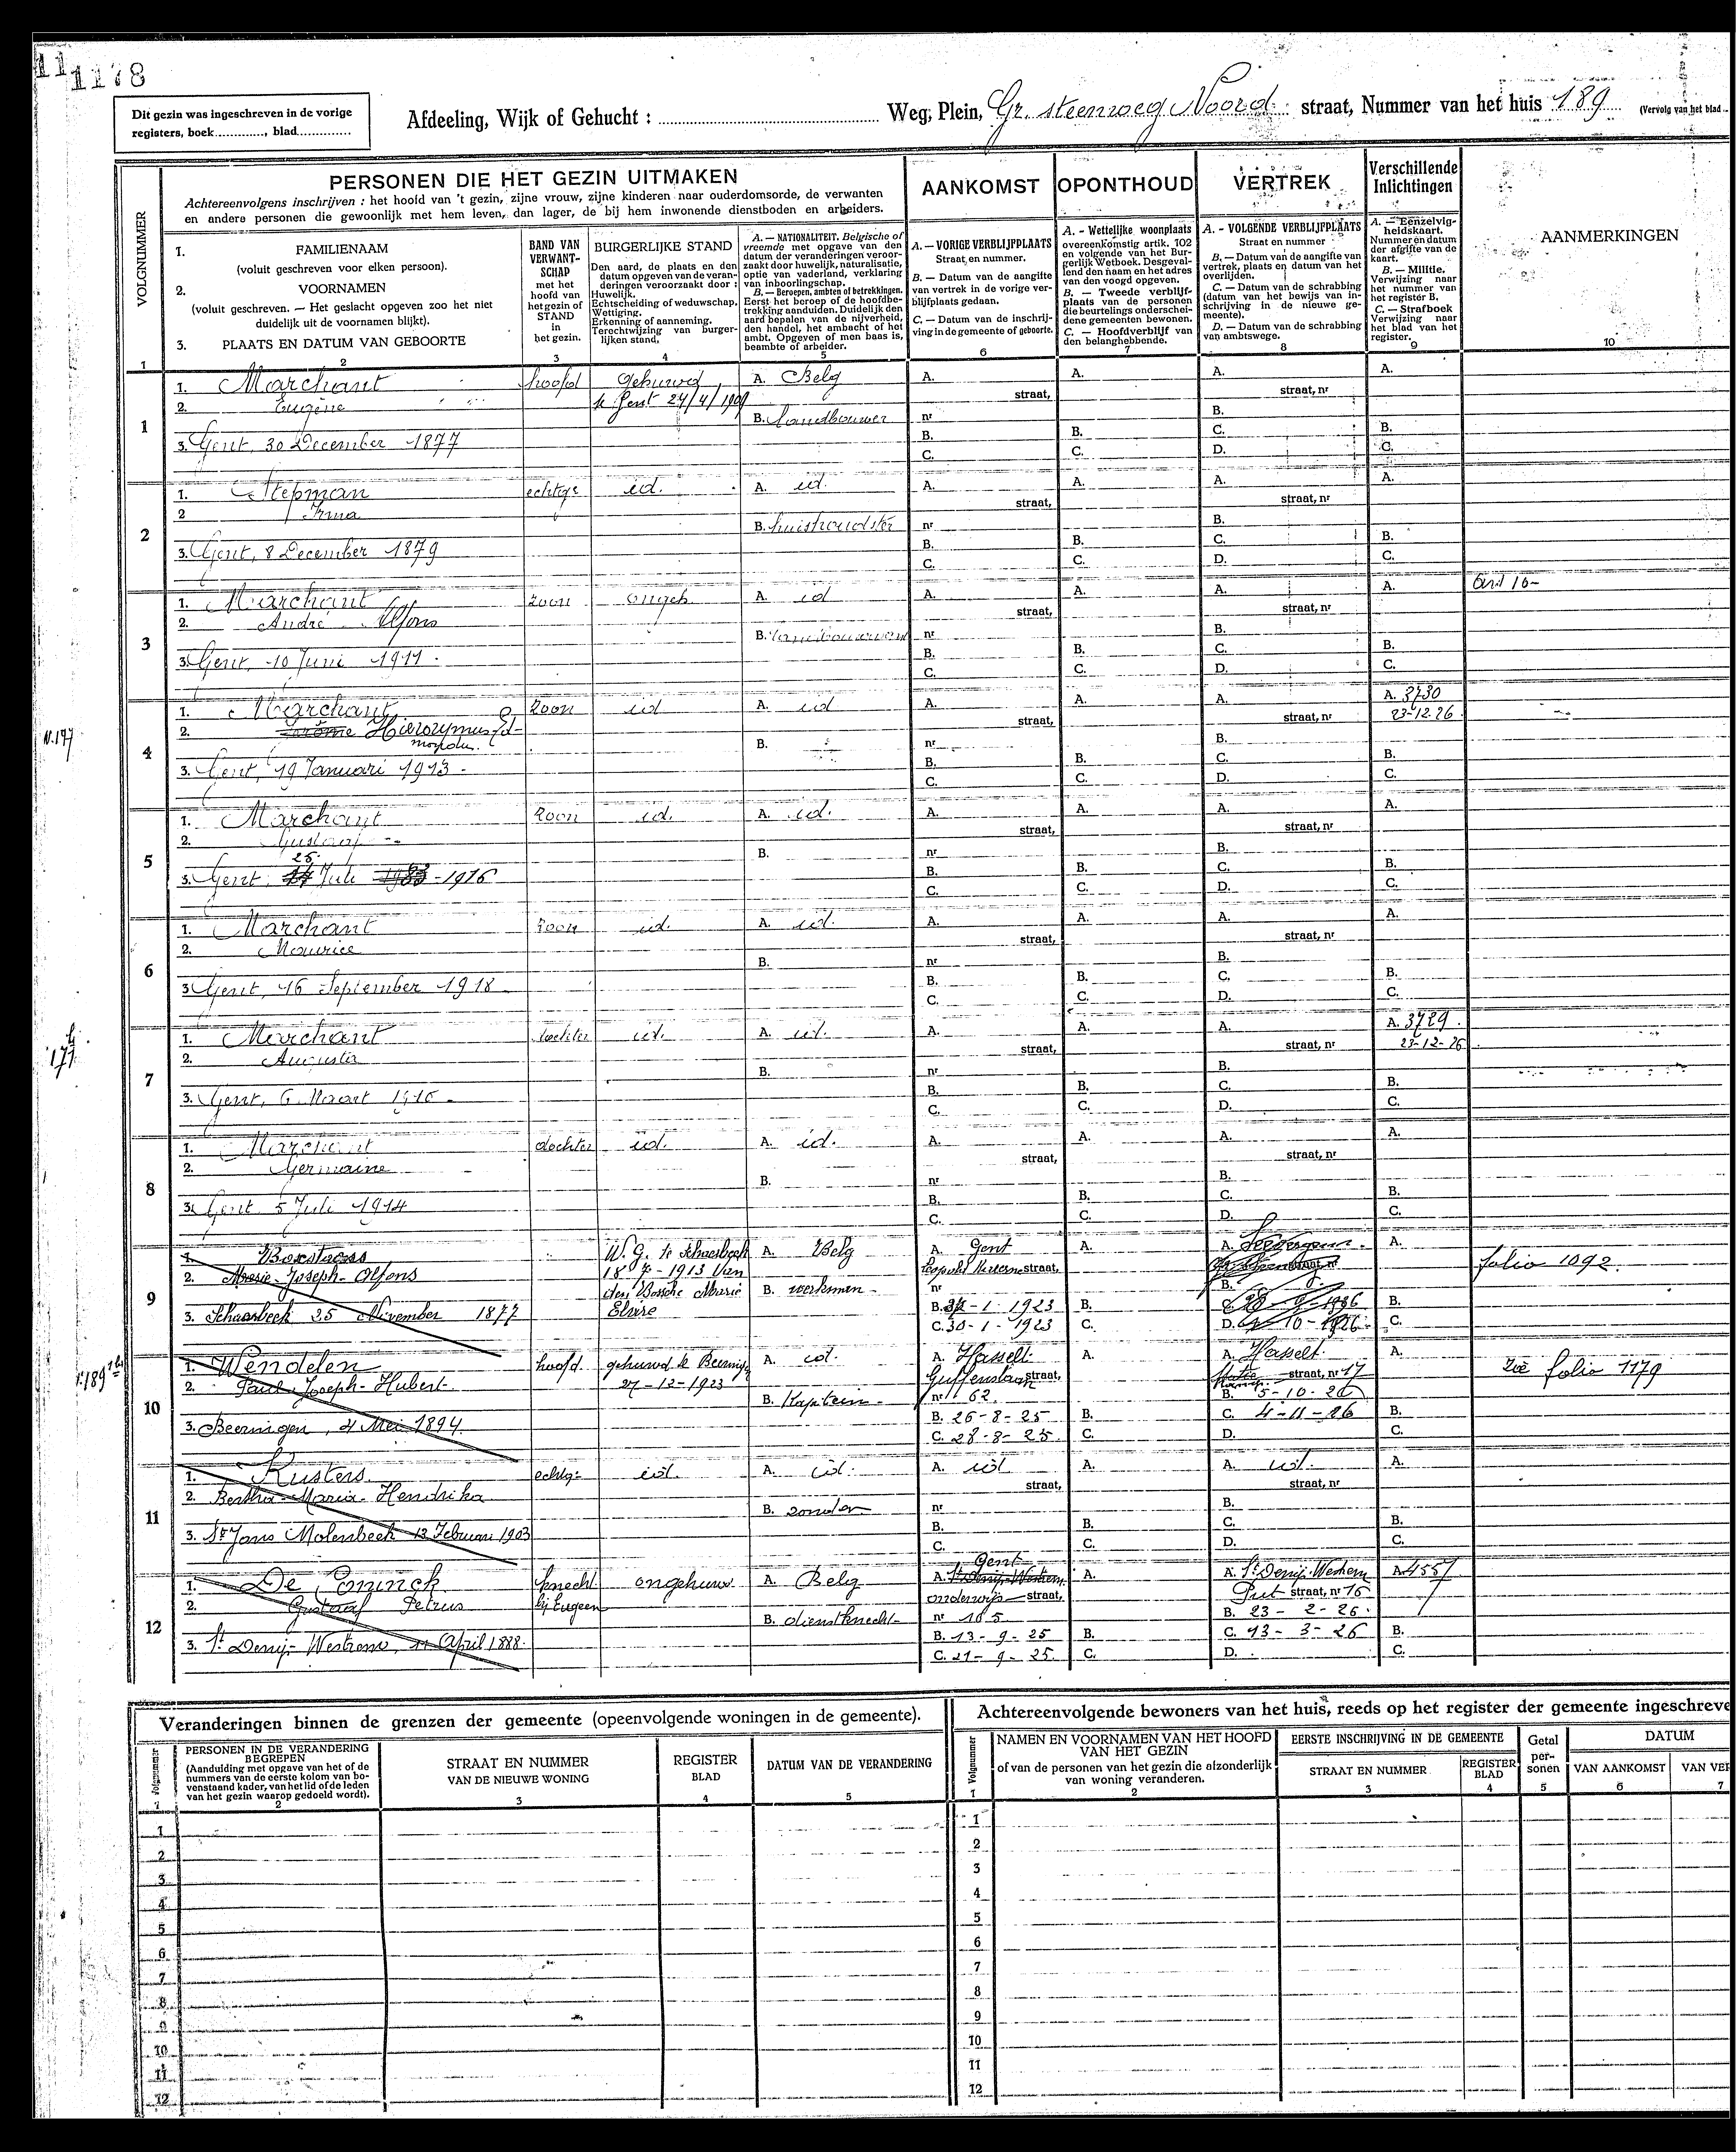 1178
Dit gezin was ingeschreven in de vorige
registers, boek............., blad.............
Afdeeling, Wijk of Gehucht : ............ Weg, Plein, Gr. steenweg Noord straat, Nummer van het huis 189 (Vervolg van het blad
VOLGNUMMER
PERSONEN DIE HET GEZIN UITMAKEN
Achtereenvolgens inschrijven : het hoofd van 't gezin, zijne vrouw, zijne kinderen naar ouderdomsorde, de verwanten
en andere personen die gewoonlijk met hem leven, dan lager, de bij hem inwonende dienstboden en arbeiders.
AANKOMST
OPONTHOUD
VERTREK
Verschillende
Inlichtingen
AANMERKINGEN
1. FAMILIENAAM
(voluit geschreven voor elken persoon).
2. VOORNAMEN
(voluit geschreven. — Het geslacht opgeven zoo het niet
duidelijk uit de voornamen blijkt).
3. PLAATS EN DATUM VAN GEBOORTE
BAND VAN
VERWANT-
SCHAP
met het
hoofd van
het gezin of
STAND
in
het gezin.
BURGERLIJKE STAND
Den aard, de plaats en den
datum opgeven van de veran-
deringen veroorzaakt door :
Huwelijk.
Echtscheiding of weduwschap.
Wettiging.
Erkenning of aanneming.
Terechtwijzing van burger-
lijken stand.
A. — NATIONALITEIT. Belgische of
vreemde met opgave van den
datum der veranderingen veroor-
zaakt door huwelijk, naturalisatie,
optie van vaderland, verklaring
van inboorlingschap.
B. — Beroepen, ambten of betrekkingen.
Eerst het beroep of de hoofdbe-
trekking aanduiden. Duidelijk den
aard bepalen van de nijverheid,
den handel, het ambacht of het
ambt. Opgeven of men baas is,
beambte of arbeider.
A. — VORIGE VERBLIJFPLAATS
Straat en nummer.
B. — Datum van de aangifte
van vertrek in de vorige ver-
blijfplaats gedaan.
C. — Datum van de inschrij-
ving in de gemeente of geboorte.
A. - Wettelijke woonplaats
overeenkomstig artik. 102
en volgende van het Bur-
gerlijk Wetboek. Desgeval-
lend den naam en het adres
van den voogd opgeven.
B. — Tweede verblijf-
plaats van de personen
die beurtelings onderschei-
dene gemeenten bewonen.
C. — Hoofdverblijf van
den belanghebbende.
A. - VOLGENDE VERBLIJFPLAATS
Straat en nummer
B. — Datum van de aangifte van
vertrek, plaats en datum van het
overlijden.
C. — Datum van de schrabbing
(datum van het bewijs van in-
schrijving in de nieuwe ge-
meente).
D. — Datum van de schrabbing
van ambtswege.
A. — Eenzelvig-
heidskaart.
Nummer en datum
der afgifte van de
kaart.
B. — Militie.
Verwijzing naar
het nummer van
het register B.
C. — Strafboek
Verwijzing naar
het blad van het
register.
1 2 3 4 5 6 7 8 9 10
1. Marchant hoofd gehuwd A. Belg A. A. A. A.
2. Eugène te Gent 24/4/1909 straat, straat, nr
1 B. landbouwer nr B.
3. Gent, 30 December 1877 B. B. C. B.
C. C. D. C.
1. Stepman echtge id. A. id. A. A. A. A.
2 Irma straat, straat, nr
2 B. huishoudster nr B.
3. Gent, 8 December 1879 B. B. C. B.
C. C. D. C.
1. Marchant zoon ongeh A. id A. A. A. A.
2. André Alfons straat, straat, nr
3 B. nr B.
3. Gent, 10 Juni 1911. B. B. C. B.
C. C. D. C.
1. Marchant zoon id A. id A. A. A. A. 3730
2. Jerôme Hieronymus Ed- straat, straat, nr 23-12-26
N. 177
mondus. B. nr B.
4
3. Gent, 19 Januari 1913 - B. B. C. B.
C. C. D. C.
1. Marchant zoon id. A. id. A. A. A. A.
2. Gustaaf straat, straat, nr
5 25 B. nr B.
3. Gent, Juli - 1916 B. B. C. B.
C. C. D. C.
1. Marchant zoon id. A. id. A. A. A. A.
2. Maurice straat, straat, nr
6 B. nr B.
3 Gent, 16 September 1918 B. B. C. B.
C. C. D. C.
1. Marchant dochter id. A. id. A. A. A. A. 3729
2. Augusta straat, straat, nr 23-12-26
177
7 B. nr B.
3. Gent, 6 Maart 1910 - B. B. C. B.
C. C. D. C.
1. Marchant dochter id. A. id. A. A. A. A.
2. Germaine straat, straat, nr
8 B. nr B.
3. Gent 5 Juli 1914 B. B. C. B.
C. C. D. C.
1. W. G. te Schaerbeek A. Belg A. Gent A. A. A.
2. Marie-Joseph-Alfons 18-7-1913 Van straat, straat, nr folio 1092.
9 den Bossche Marie B. werkman - nr B.
3. Schaarbeek 25 November 1877 Elvire B. 1-1923 B. C. B.
C. 30-1-1923 C. D. 10-1926 C.
1. Wendelen hoofd. gehuwd te Beeringen A. id. A. Hasselt A. A. Hasselt. A.
2. Paul-Joseph-Hubert- 27-12-1923 Guffenslaan straat, straat, nr 17 zie folio 1179
10 B. Kaptein - nr 62. B. 5-10-26
3. Beeringen, 4 Mei 1894. B. 26-8-25 B. C. 4-11-26 B.
C. 28-8-25. C. D. C.
1. Kusters echtg: id. A. id. A. id A. A. id. A.
2. Bertha-Maria-Hendrika straat, straat, nr
11 B. zonder nr B.
3. St Jans Molenbeek 13 Februari 1903 B. B. C. B.
C. C. D. C.
Gent
1. De Coninck knecht ongehuwd A. Belg A. St Denijs-Westrem A. A. St Denijs-Westrem A 4557
2. Gustaaf Petrus bij Eugeen straat, Put straat, nr 16
12 B. dienstknecht- nr 165 B. 23-2-26.
3. St Denijs-Westrem, 11 April 1888. B. 13-9-25 B. C. 13-3-26 B.
C. 21-9-25. C. D. C.
Veranderingen binnen de grenzen der gemeente (opeenvolgende woningen in de gemeente).
Volgnummer
PERSONEN IN DE VERANDERING
BEGREPEN
(Aanduiding met opgave van het of de
nummers van de eerste kolom van bo-
venstaand kader, van het lid of de leden
van het gezin waarop gedoeld wordt).
STRAAT EN NUMMER
VAN DE NIEUWE WONING
REGISTER
BLAD
DATUM VAN DE VERANDERING
1 2 3 4 5
1
2
3
4
5
6
7
8
9
10
11
12
Achtereenvolgende bewoners van het huis, reeds op het register der gemeente ingeschreve
Volgnummer
NAMEN EN VOORNAMEN VAN HET HOOFD
VAN HET GEZIN
of van de personen van het gezin die afzonderlijk
van woning veranderen.
EERSTE INSCHRIJVING IN DE GEMEENTE
STRAAT EN NUMMER
REGISTER
BLAD
Getal
per-
sonen
DATUM
VAN AANKOMST
VAN VER
1 2 3 4 5 6 7
1
2
3
4
5
6
7
8
9
10
11
12